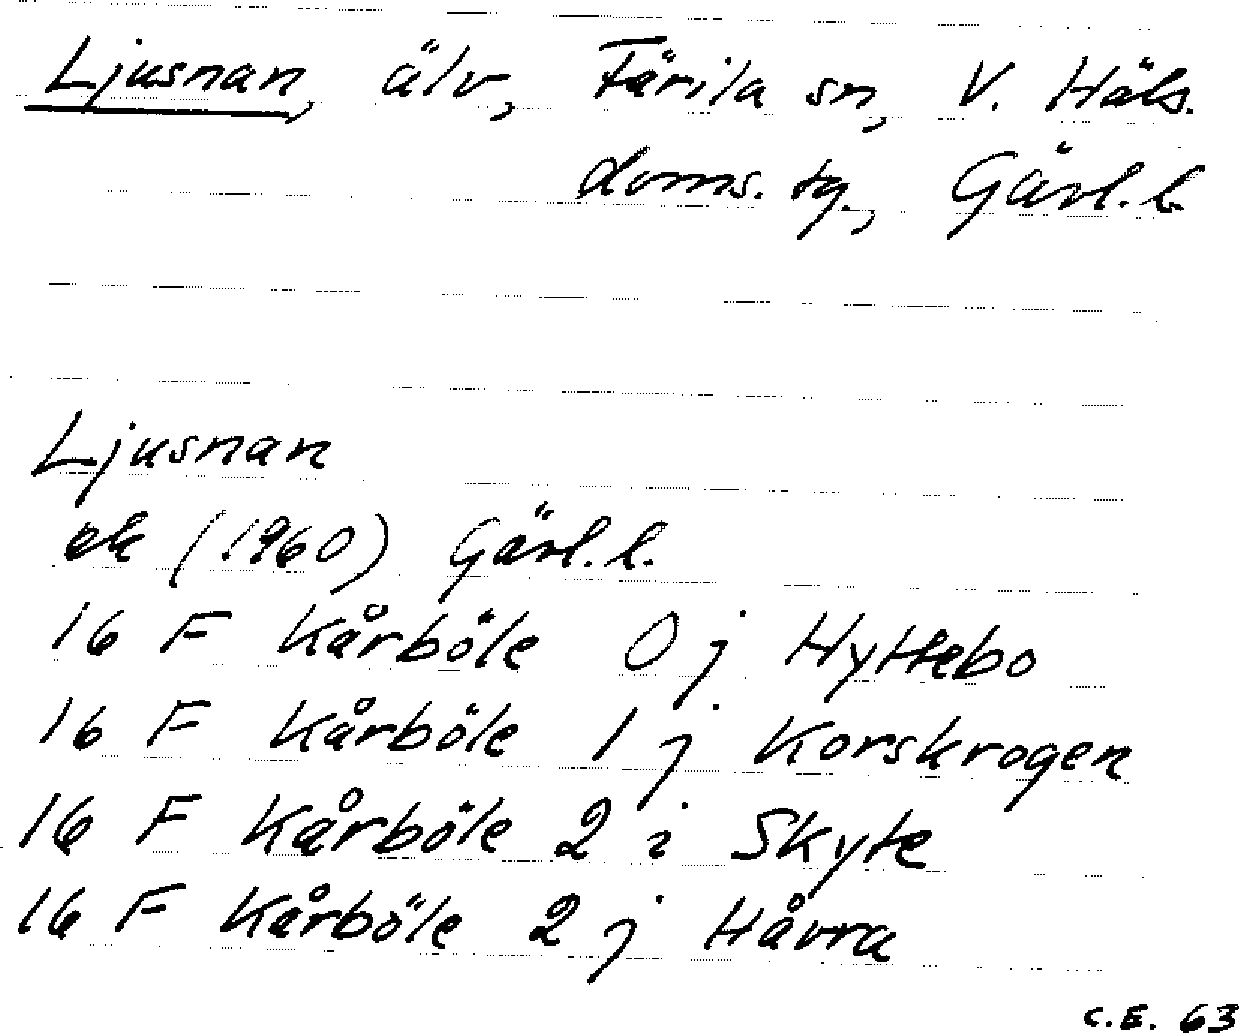 Ljusnan, älv, Färila sn, V. Häls.
doms. tg., Gävl. l.
Ljusnan
ek (1960) Gävl. l.
16 F Kårböle 0 j Hyttebo
16 F Kårböle 1 j Korskrogen
16 F Kårböle 2 i Skyte
16 F Kårböle 2 j Håvra
C.E. 63